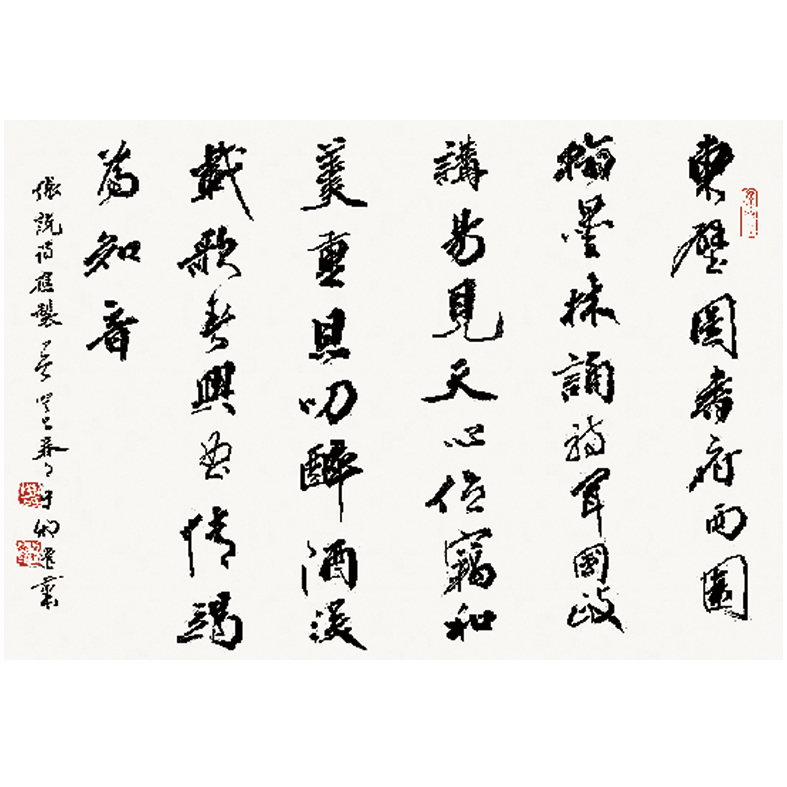 東壁圖書府西園
翰墨林誦詩聞國政
講易見天心位竊和
羹重恩叨醉酒深
載歌春興曲情竭
為知音
張說詩應製 癸巳春月